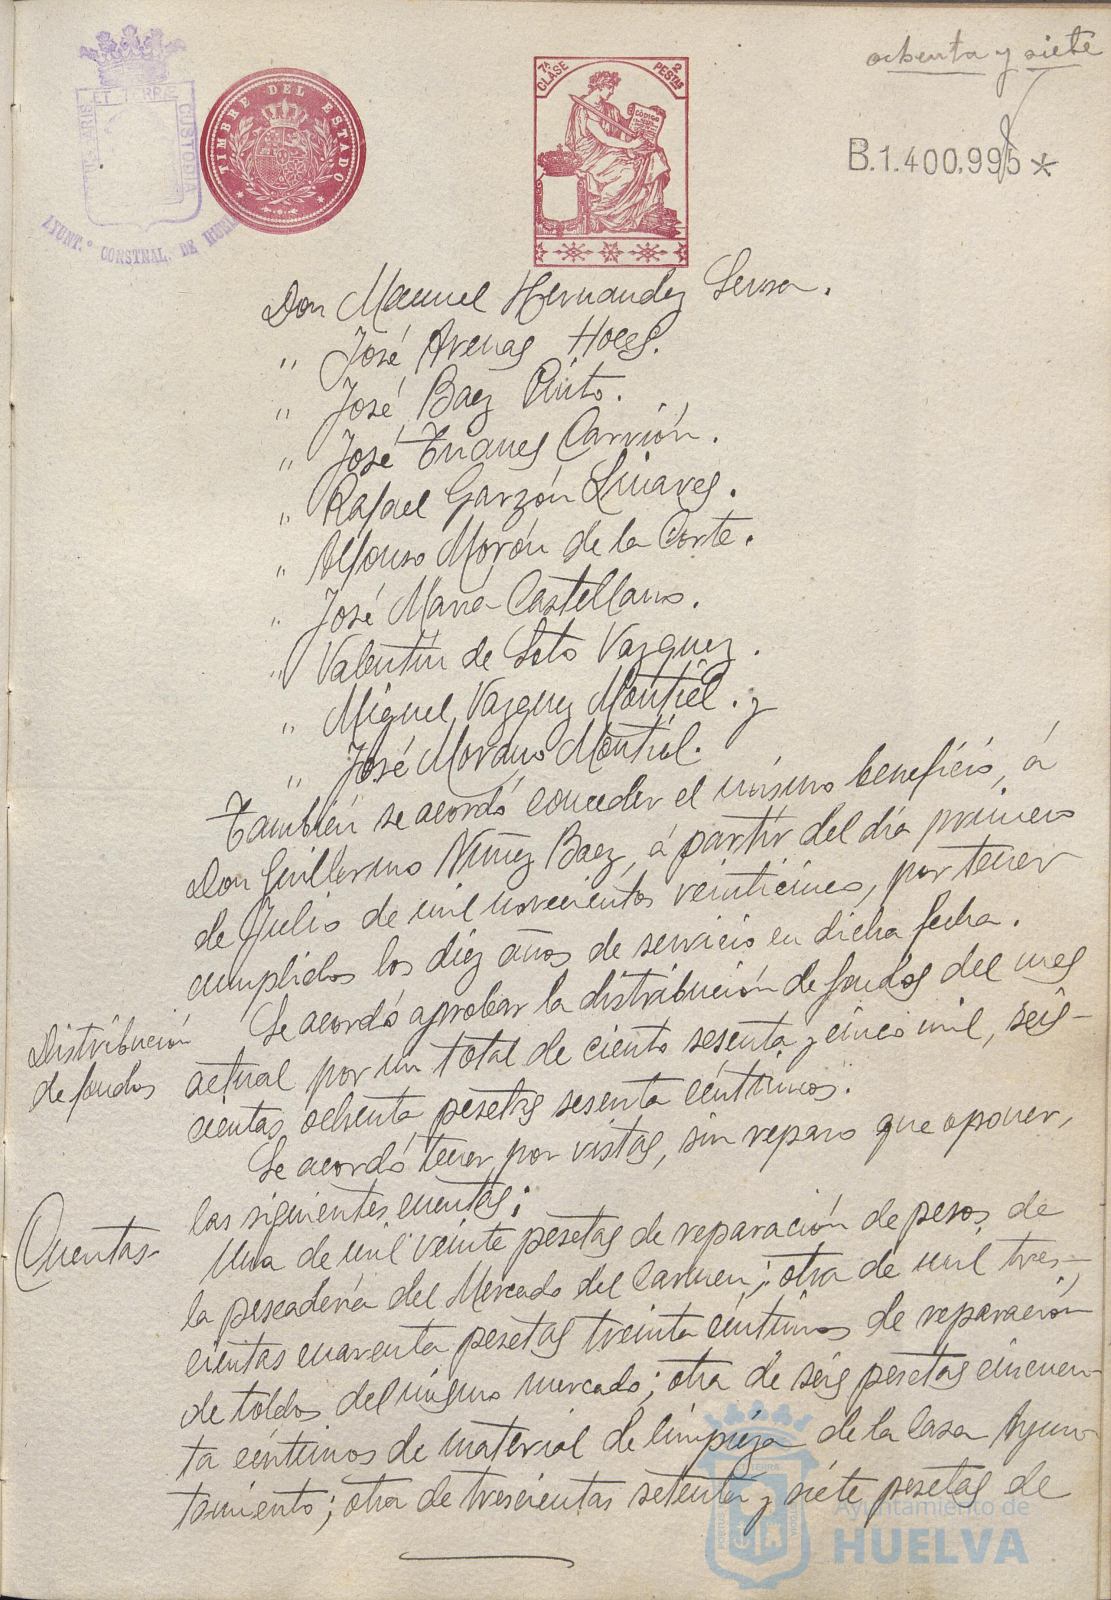 ochenta y siete
B.1.400,995*
PORTUS MARIS ET TERRÆ CUSTODIA
AYUNT.º CONSTNAL. DE HUELVA
TIMBRE DEL ESTADO
7ª CLASE
2 PESTAS
CÓDIGO
Don Manuel Hernandez
" José Arenas
" José Baez Pinto.
" José Carrión.
" Rafael Garzón Linares.
" Alfonso Morón de la Corte.
" José Maria Castellano.
" Valentín de Soto Vazquez.
" Miguel Vazquez Montiel. y
" José Morano Montiel.
También se acordó conceder el mismo beneficio, á
Don Guillermo Nuñez Baez, á partir del día primero
de Julio de mil novecientos veinticinco, por tener
cumplidos los diez años de servicio en dicha fecha.
Distribución
de fondos
Se acordó aprobar la distribución de fondos del mes
actual por un total de ciento sesenta y cinco mil, seis-
cientas ochenta pesetas sesenta céntimos.
Se acordó tener por vistas, sin reparo que oponer,
Cuentas
las siguientes cuentas:
Una de mil veinte pesetas de reparación de pesos de
la pescadería del Mercado del Carmen; otra de mil tres-
cientas cuarenta pesetas treinta céntimos de reparación
de toldos del mismo mercado; otra de seis pesetas cincuen-
ta céntimos de material de limpieza de la Casa Ayun-
tamiento; otra de trescientas setenta y siete pesetas de
Ayuntamiento de
HUELVA